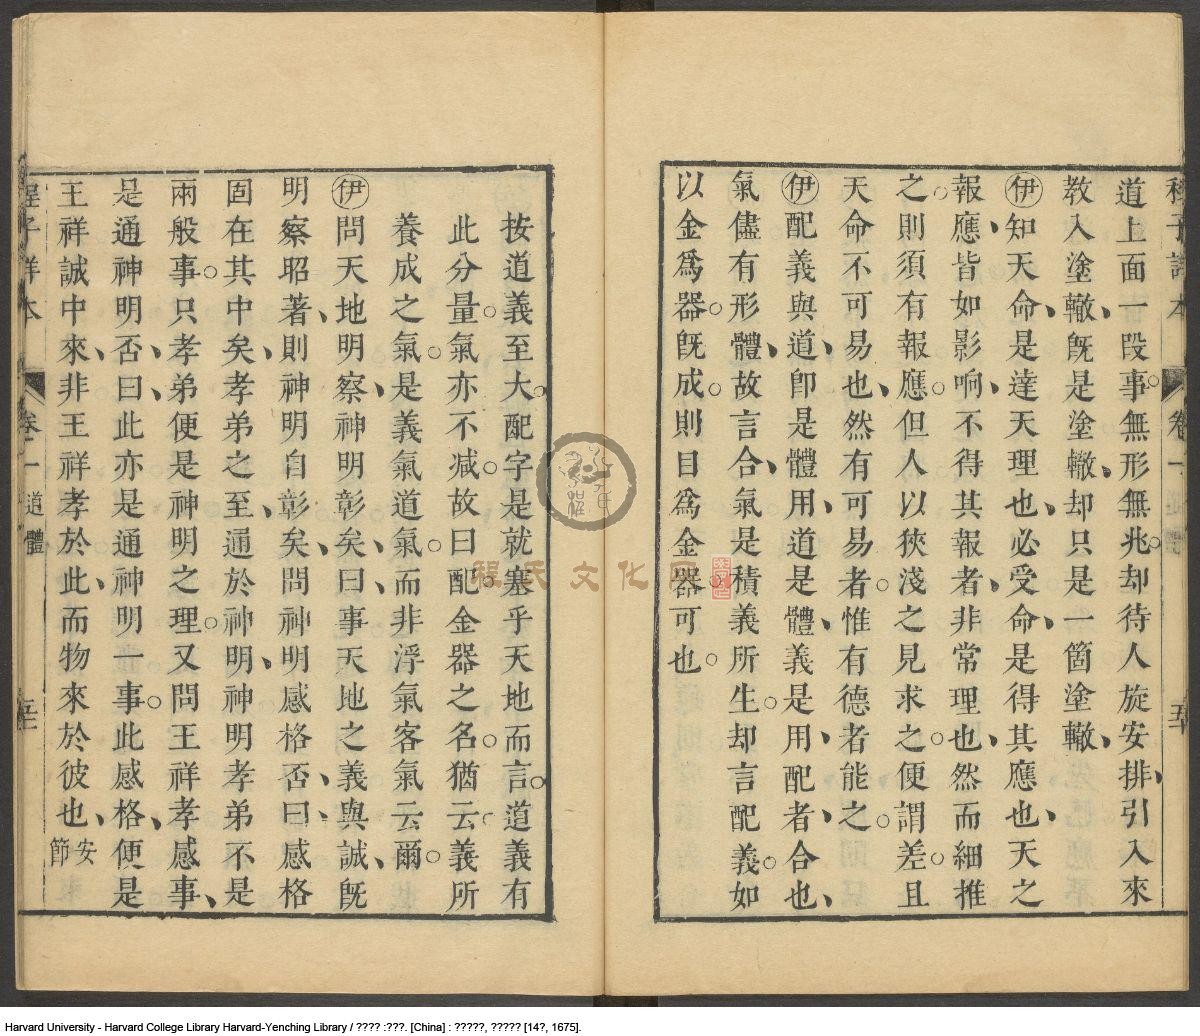 程子詳本 卷一 五十
道上面一段事無形無兆却待人旋安排引入來
教入塗轍既是塗轍却只是一箇塗轍
伊知天命是達天理也必受命是得其應也天之
報應皆如影响不得其報者非常理也然而細推
之則須有報應但人以狹淺之見求之便謂差且
天命不可易也然有可易者惟有德者能之
伊配義與道卽是體用道是體義是用配者合也
氣儘有形體故言合氣是積義所生却言配義如
以金爲器旣成則目爲金器可也
按道義至大配字是就塞乎天地而言道義有
此分量氣亦不减故曰配金器之名猶云義所
養成之氣是義氣道氣而非浮氣客氣云爾
伊問天地明察神明彰矣曰事天地之義與誠旣
明察昭著則神明自彰矣問神明感格否曰感格
固在其中矣孝弟之至通於神明神明孝弟不是
兩般事只孝弟便是神明之理又問王祥孝感事
是通神明否曰此亦是通神明一事此感格便是
王祥誠中來非王祥孝於此而物來於彼也安節
程子詳本 卷一 道體
程氏文化网
Harvard University - Harvard College Library Harvard-Yenching Library / ???? :???. [China] : ?????, ????? [14?, 1675].